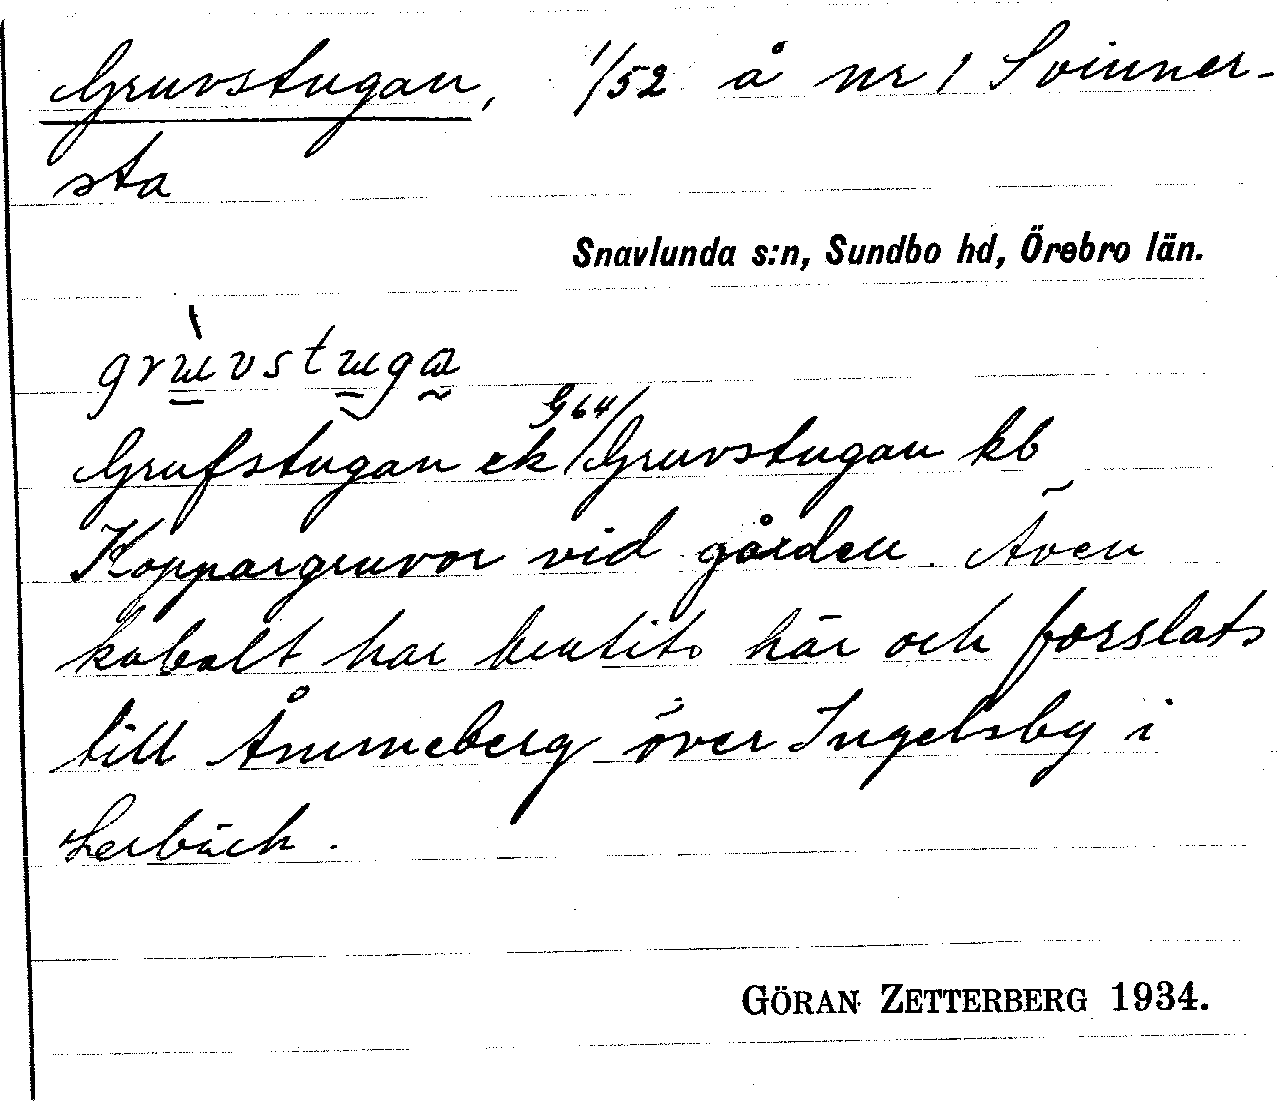 Gruvstugan, 1/52 å nr 1 Svinner-
sta
Snavlunda s:n, Sundbo hd, Örebro län.
grɯ̀vstɯga
G 64/
Grufstugan ek / Gruvstugan kb
Koppargruvor vid gården. Även
kobolt har brutits här och forslats
till Åmmeberg över Ingelsby i
Lerbäck.
GÖRAN ZETTERBERG 1934.